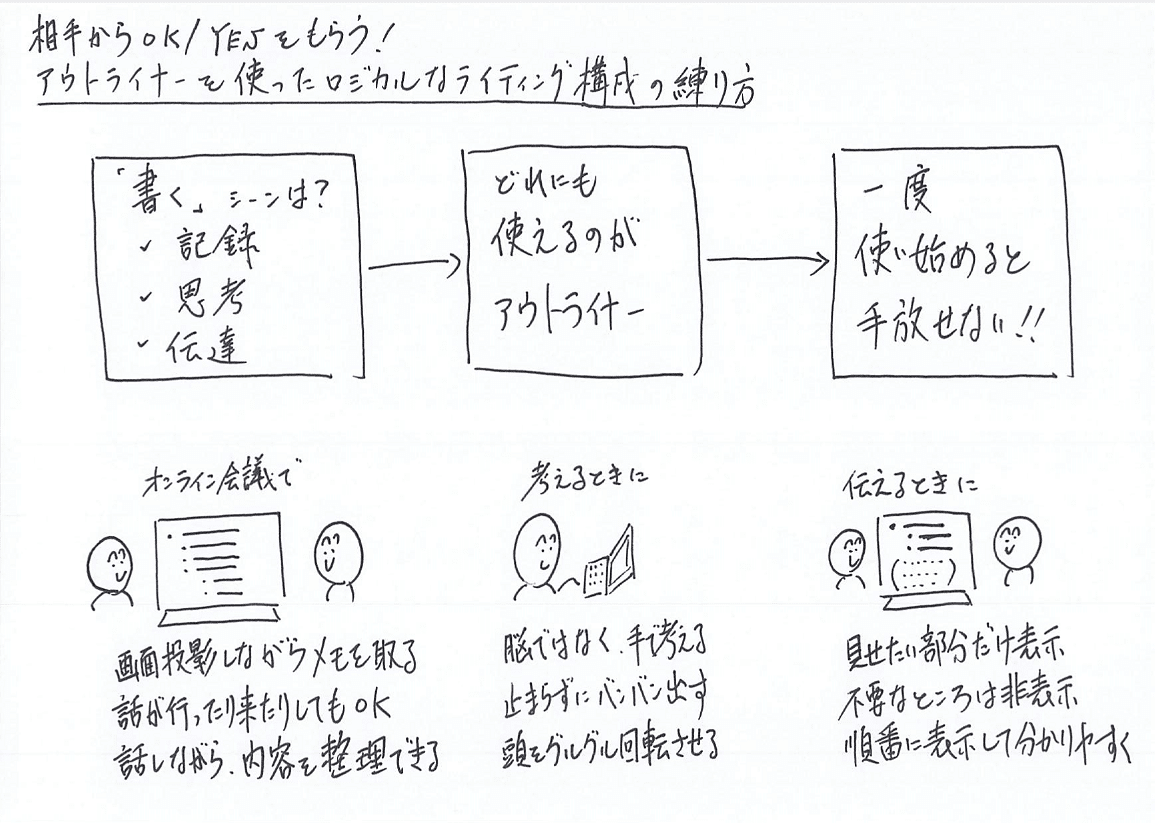 相手からOK/YESをもらう!
アウトライナーを使ったロジカルなライティング構成の練り方
「書く」シーンは?
✓ 記録
✓ 思考
✓ 伝達
どれにも
使えるのが
アウトライナー
一度
使い始めると
手放せない!!
オンライン会議で
画面投影しながらメモを取る
話が行ったり来たりしてもOK
話しながら、内容を整理できる
考えるときに
脳ではなく、手で考える
止まらずにバンバン出す
頭をグルグル回転させる
伝えるときに
見せたい部分だけ表示
不要なところは非表示
順番に表示して分かりやすく